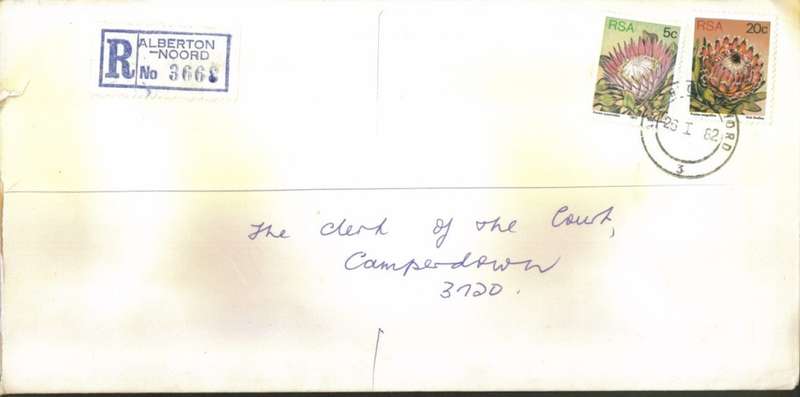 ALBERTON
-NOORD
R No 3668
RSA 5c
RSA 20c
26 I 82
3
The Clerk of the Court,
Camperdown
3720.